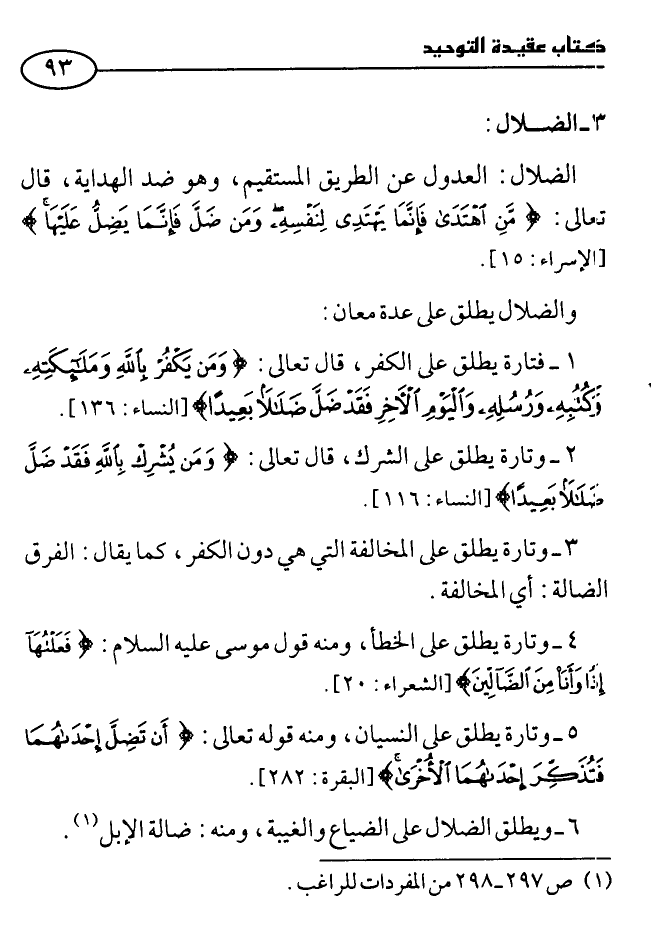 كتاب عقيدة التوحيد
٩٣
٣ـ الضـــلال :
الضلال : العدول عن الطريق المستقيم ، وهو ضد الهداية ، قال
تعالى : ﴿ مَّنِ ٱهْتَدَىٰ فَإِنَّمَا يَهْتَدِى لِنَفْسِهِۦ ۖ وَمَن ضَلَّ فَإِنَّمَا يَضِلُّ عَلَيْهَا ۚ ﴾
[الإسراء : ١٥] .
والضلال يطلق على عدة معان :
١ ـ فتارة يطلق على الكفر ، قال تعالى : ﴿ وَمَن يَكْفُرْ بِٱللَّهِ وَمَلَـٰٓئِكَتِهِۦ
وَكُتُبِهِۦ وَرُسُلِهِۦ وَٱلْيَوْمِ ٱلْأَخِرِ فَقَدْ ضَلَّ ضَلَـٰلًۢا بَعِيدًا ﴾ [النساء : ١٣٦] .
٢ ـ وتارة يطلق على الشرك ، قال تعالى : ﴿ وَمَن يُشْرِكْ بِٱللَّهِ فَقَدْ ضَلَّ
ضَلَـٰلًۢا بَعِيدًا ﴾ [النساء : ١١٦] .
٣ ـ وتارة يطلق على المخالفة التي هي دون الكفر ، كما يقال : الفرق
الضالة : أي المخالفة .
٤ ـ وتارة يطلق على الخطأ ، ومنه قول موسى عليه السلام : ﴿ فَعَلْتُهَآ
إِذًا وَأَنَا۠ مِنَ ٱلضَّآلِّينَ ﴾ [الشعراء : ٢٠] .
٥ ـ وتارة يطلق على النسيان ، ومنه قوله تعالى : ﴿ أَن تَضِلَّ إِحْدَىٰهُمَا
فَتُذَكِّرَ إِحْدَىٰهُمَا ٱلْأُخْرَىٰ ۚ ﴾ [البقرة : ٢٨٢] .
٦ ـ ويطلق الضلال على الضياع والغيبة ، ومنه : ضالة الإبل (١) .
(١) ص ٢٩٧ـ٢٩٨ من المفردات للراغب .